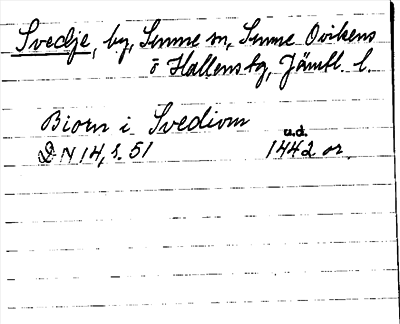 Svedje, by, Sunne sn, Sunne Ovikens
o Hallens tg, Jämtl. l.
Biorn i Svediom
DN 14, s. 51 u.d. 1442 or.